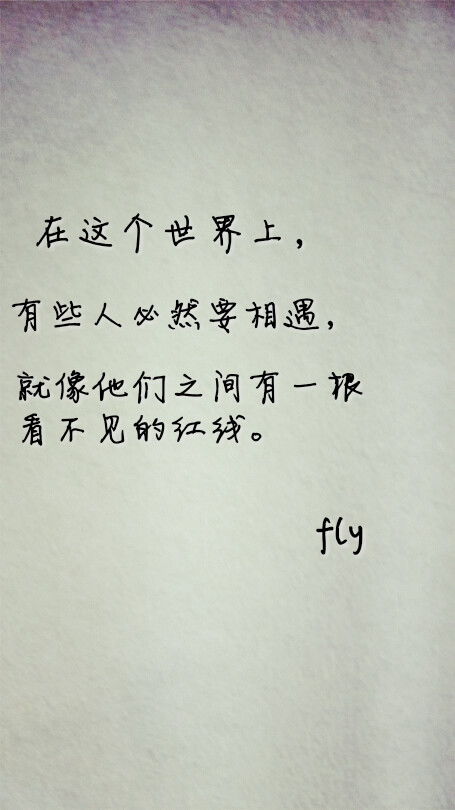 在这个世界上，
有些人必然要相遇，
就像他们之间有一根
看不见的红线。
fly